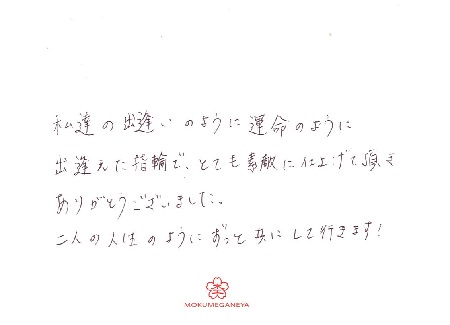 私達の出逢いのように運命のように
出逢えた指輪で、とても素敵に仕上げて頂き
ありがとうございました。
二人の人生のようにずっと共にして行きます!
MOKUMEGANEYA